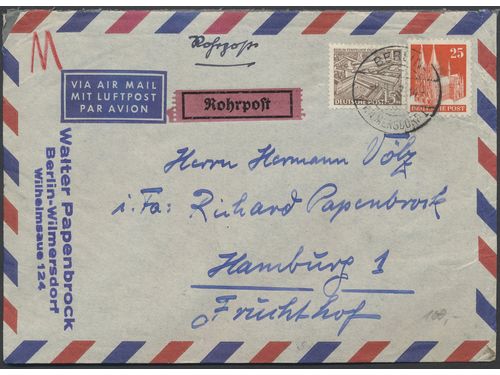 M
Rohrpost
VIA AIR MAIL
MIT LUFTPOST
PAR AVION
Rohrpost
DEUTSCHE POST
25
DEUTSCHE POST
BERLIN
WILMERSDORF
Walter Papenbrock
Berlin-Wilmersdorf
Wilhelmsaue 124
Herrn Hermann Völz
i. Fa: Richard Papenbrock
Hamburg 1
Fruchthof
160,-